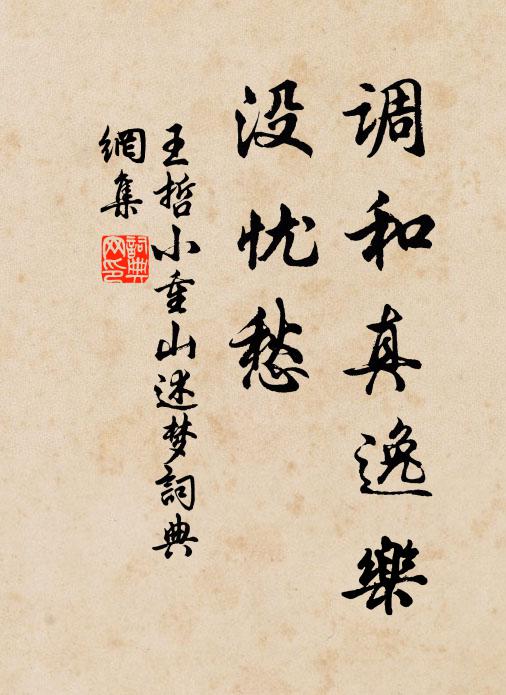 调和真逸樂
没忧愁
王哲小重山述梦詞典
網集
詞典
网印